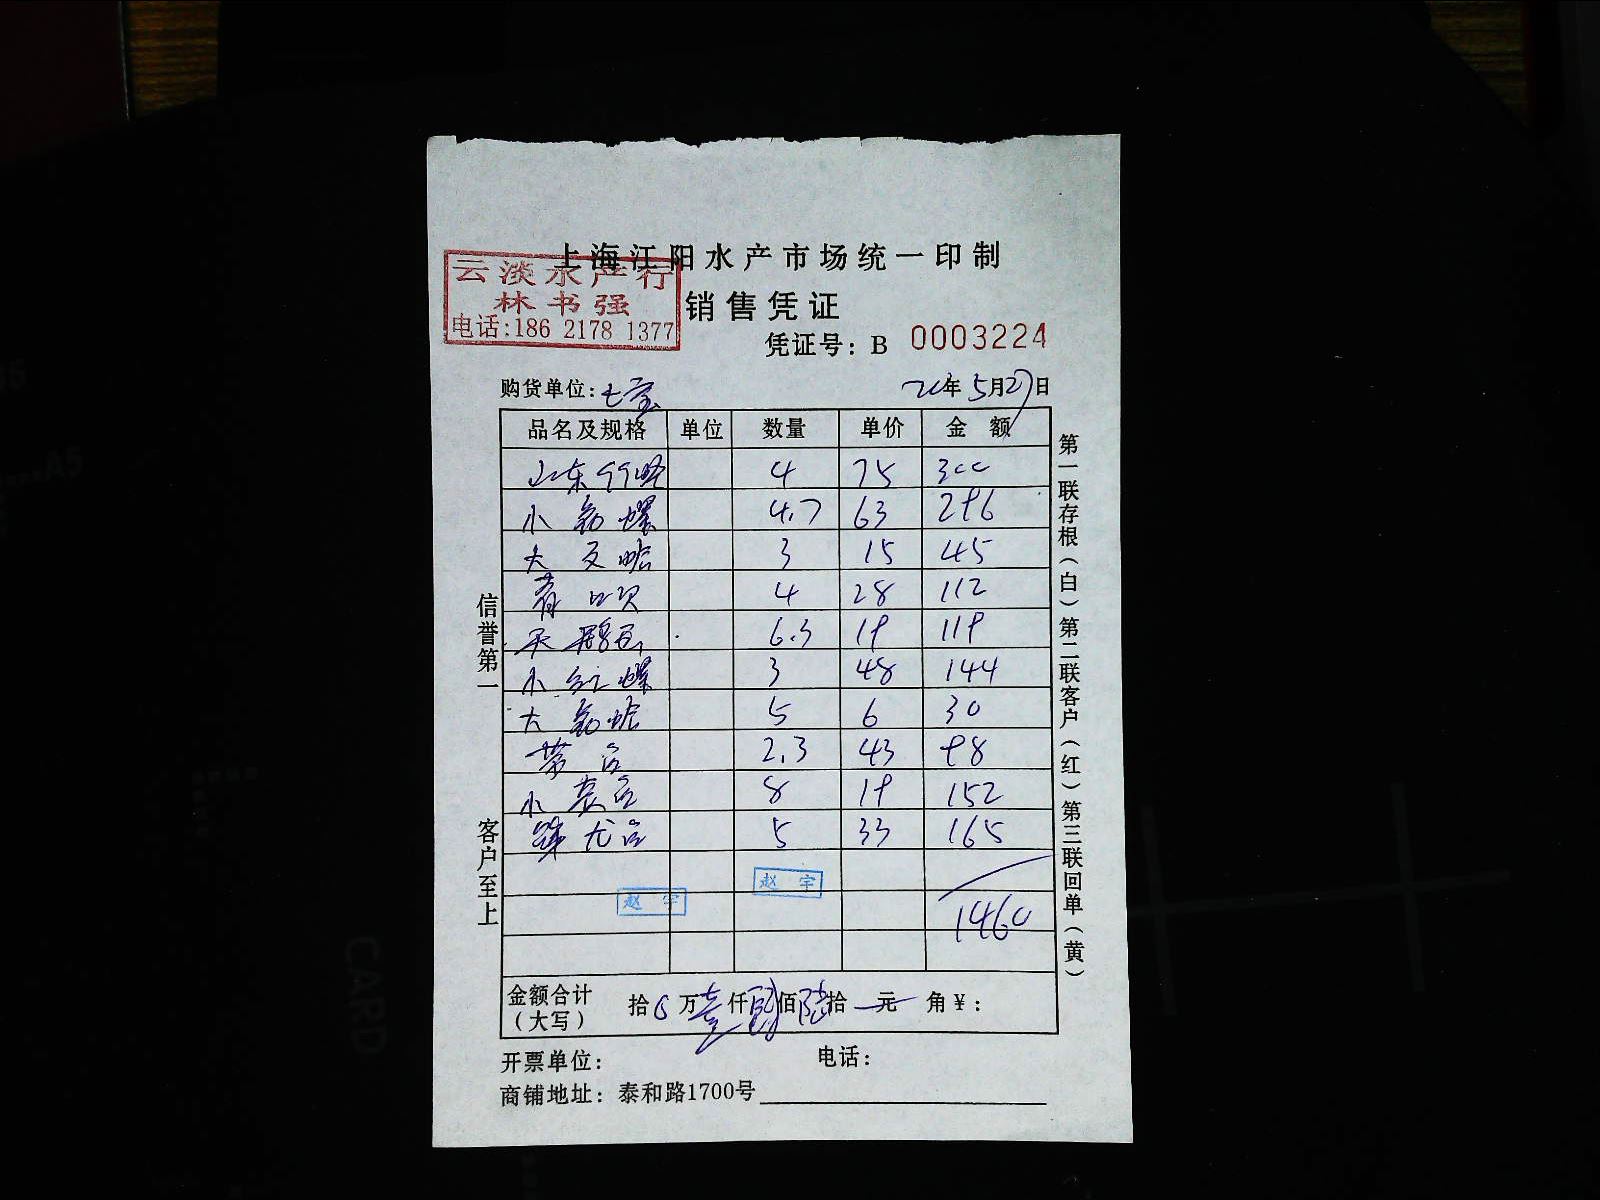 上海江阳水产市场统一印制
云淡水产行
林书强
电话:186 2178 1377
销售凭证
凭证号: B 0003224
购货单位: 七宝 年 5月27日
品名及规格 单位 数量 单价 金额
山东 4 75 300
小 螺 4.7 63 296
大 3 15 45
青口 4 28 112
天鹅 6.3 19 119
小红螺 3 48 144
大 5 6 30
2.3 43 98
小 8 19 152
5 33 165
赵宇
赵宇
1460
金额合计(大写) 拾 万壹仟肆佰陆拾 元 角¥:
开票单位: 电话:
商铺地址: 泰和路1700号
信誉第一
客户至上
第一联存根(白)第二联客户(红)第三联回单(黄)